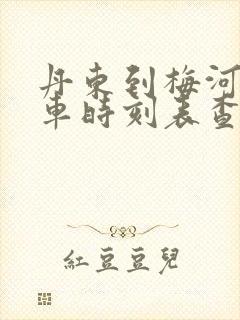 丹東到梅河
車時刻表查
紅豆豆兒